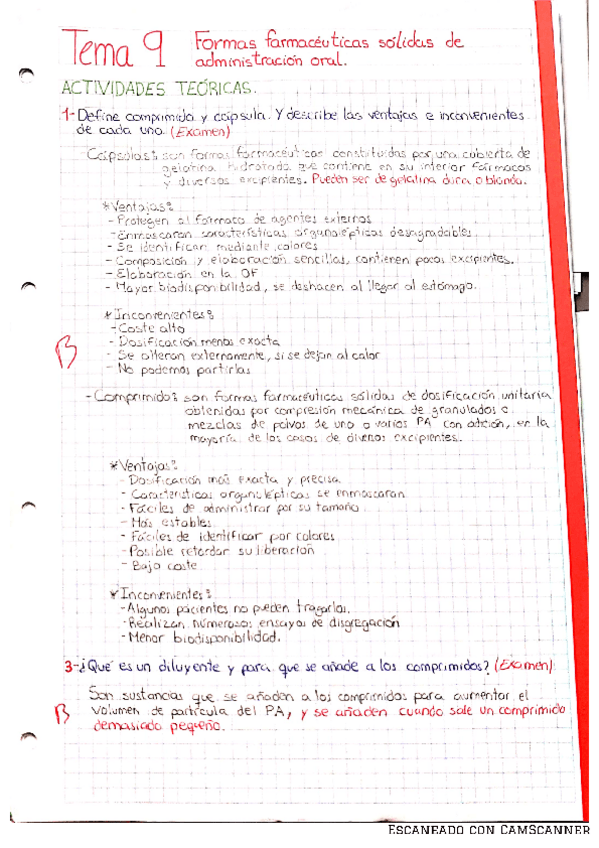 Tema 9 Formas farmacéuticas sólidas de
administración oral.
ACTIVIDADES TEÓRICAS.
1- Define comprimido y cápsula. Y describe las ventajas e inconvenientes
de cada uno. (Examen)
Cápsulas: son formas farmacéuticas constituidas por una cubierta de
gelatina hidratada que contiene en su interior fármacos
y diversos excipientes. Pueden ser de gelatina dura o blanda.
* Ventajas:
- Protegen al fármaco de agentes externos
- Enmascaran características organolépticas desagradables.
- Se identifican mediante colores
- Composición y elaboración sencillas, contienen pocos excipientes.
- Elaboración en la OF
- Mayor biodisponibilidad, se deshacen al llegar al estómago.
* Inconvenientes:
- Coste alto
- Dosificación menos exacta
B
- Se alteran externamente, si se dejan al calor
- No podemos partirlas
- Comprimido: son formas farmacéuticas sólidas de dosificación unitaria
obtenidas por compresión mecánica de granulados o
mezclas de polvos de uno o varios PA con adición, en la
mayoría de los casos de diversos excipientes.
* Ventajas:
- Dosificación más exacta y precisa
- Características organolépticas se enmascaran
- Fáciles de administrar por su tamaño
- Más estables
- Fáciles de identificar por colores
- Posible retardar su liberación
- Bajo coste
* Inconvenientes:
- Algunos pacientes no pueden tragarlos.
- Realizan numerosos ensayos de disgregación
- Menor biodisponibilidad.
3- ¿Qué es un diluyente y para que se añade a los comprimidos? (Examen)
Son sustancias que se añaden a los comprimidos para aumentar el
B volumen de partícula del PA, y se añaden cuando sale un comprimido
demasiado pequeño.
ESCANEADO CON CAMSCANNER